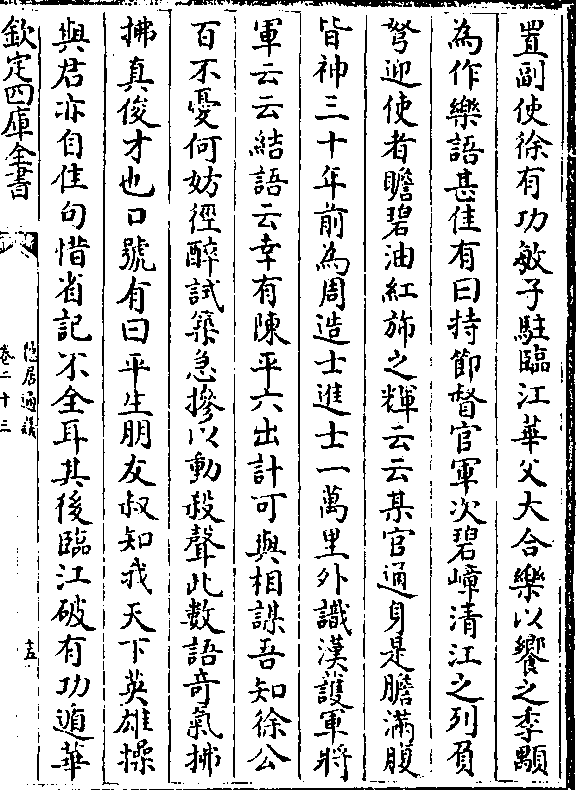 置副使徐有功敏子駐臨江華父大合樂以饗之季顒
為作樂語甚佳有曰持節督官軍次碧嶂清江之列負
弩迎使者瞻碧油紅斾之輝云云某官通身是膽滿腹
皆神三十年前為周造士進士一萬里外識漢護軍將
軍云云結語云幸有陳平六出計可與相謀吾知徐公
百不憂何妨徑醉試築急摻以動殺聲此數語竒氣拂
拂真俊才也口號有曰平生朋友叔知我天下英雄操
與君亦自佳句惜省記不全耳其後臨江破有功遁華
欽定四庫全書
隱居通議
卷二十三
十五